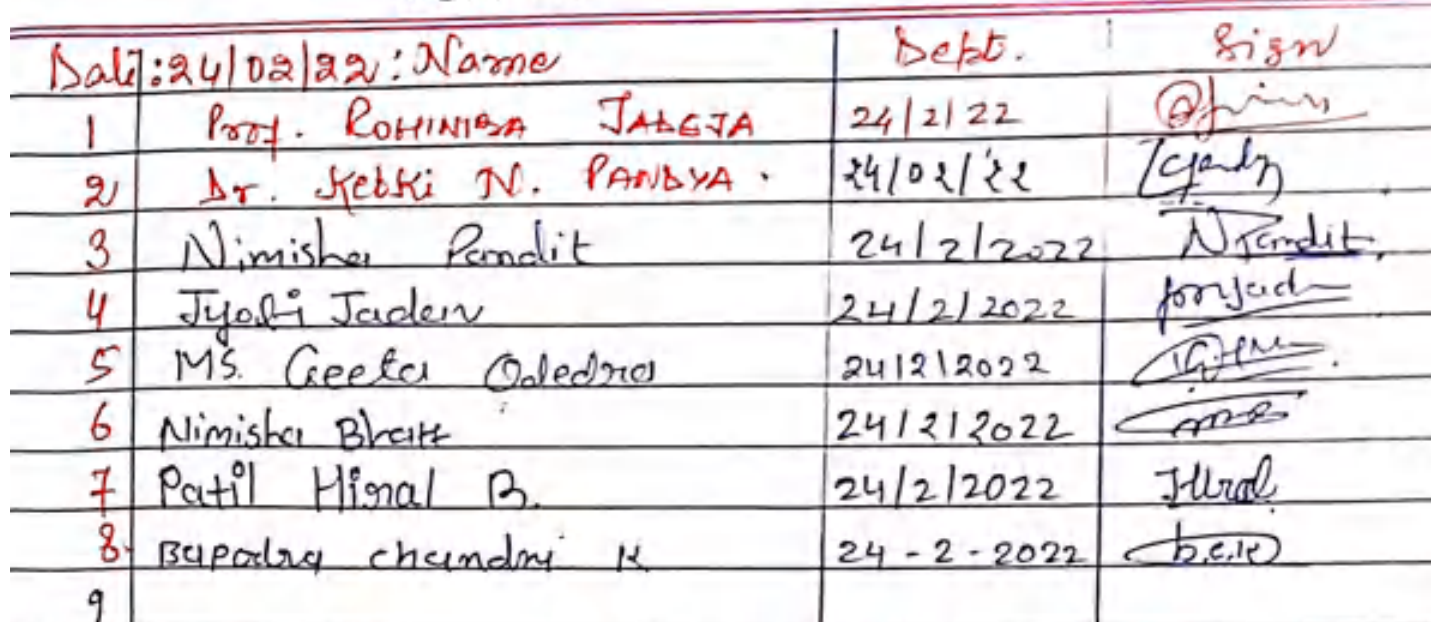 Date: 24/02/22: Name Dept. Sign
1 Prof. ROHINIBA JADEJA 24/2/22
2 Dr. Ketki N. PANDYA. 24/02/'22
3 Nimisha Pandit 24/2/2022 NPandit.
4 Jyoti Jadav 24/2/2022
5 MS. Geeta Odedra 24/2/2022
6 Nimisha Bhatt 24/2/2022
7 Patil Hiral B. 24/2/2022 Hiral
8. Bapodra chandni K 24-2-2022 b.c.k
9